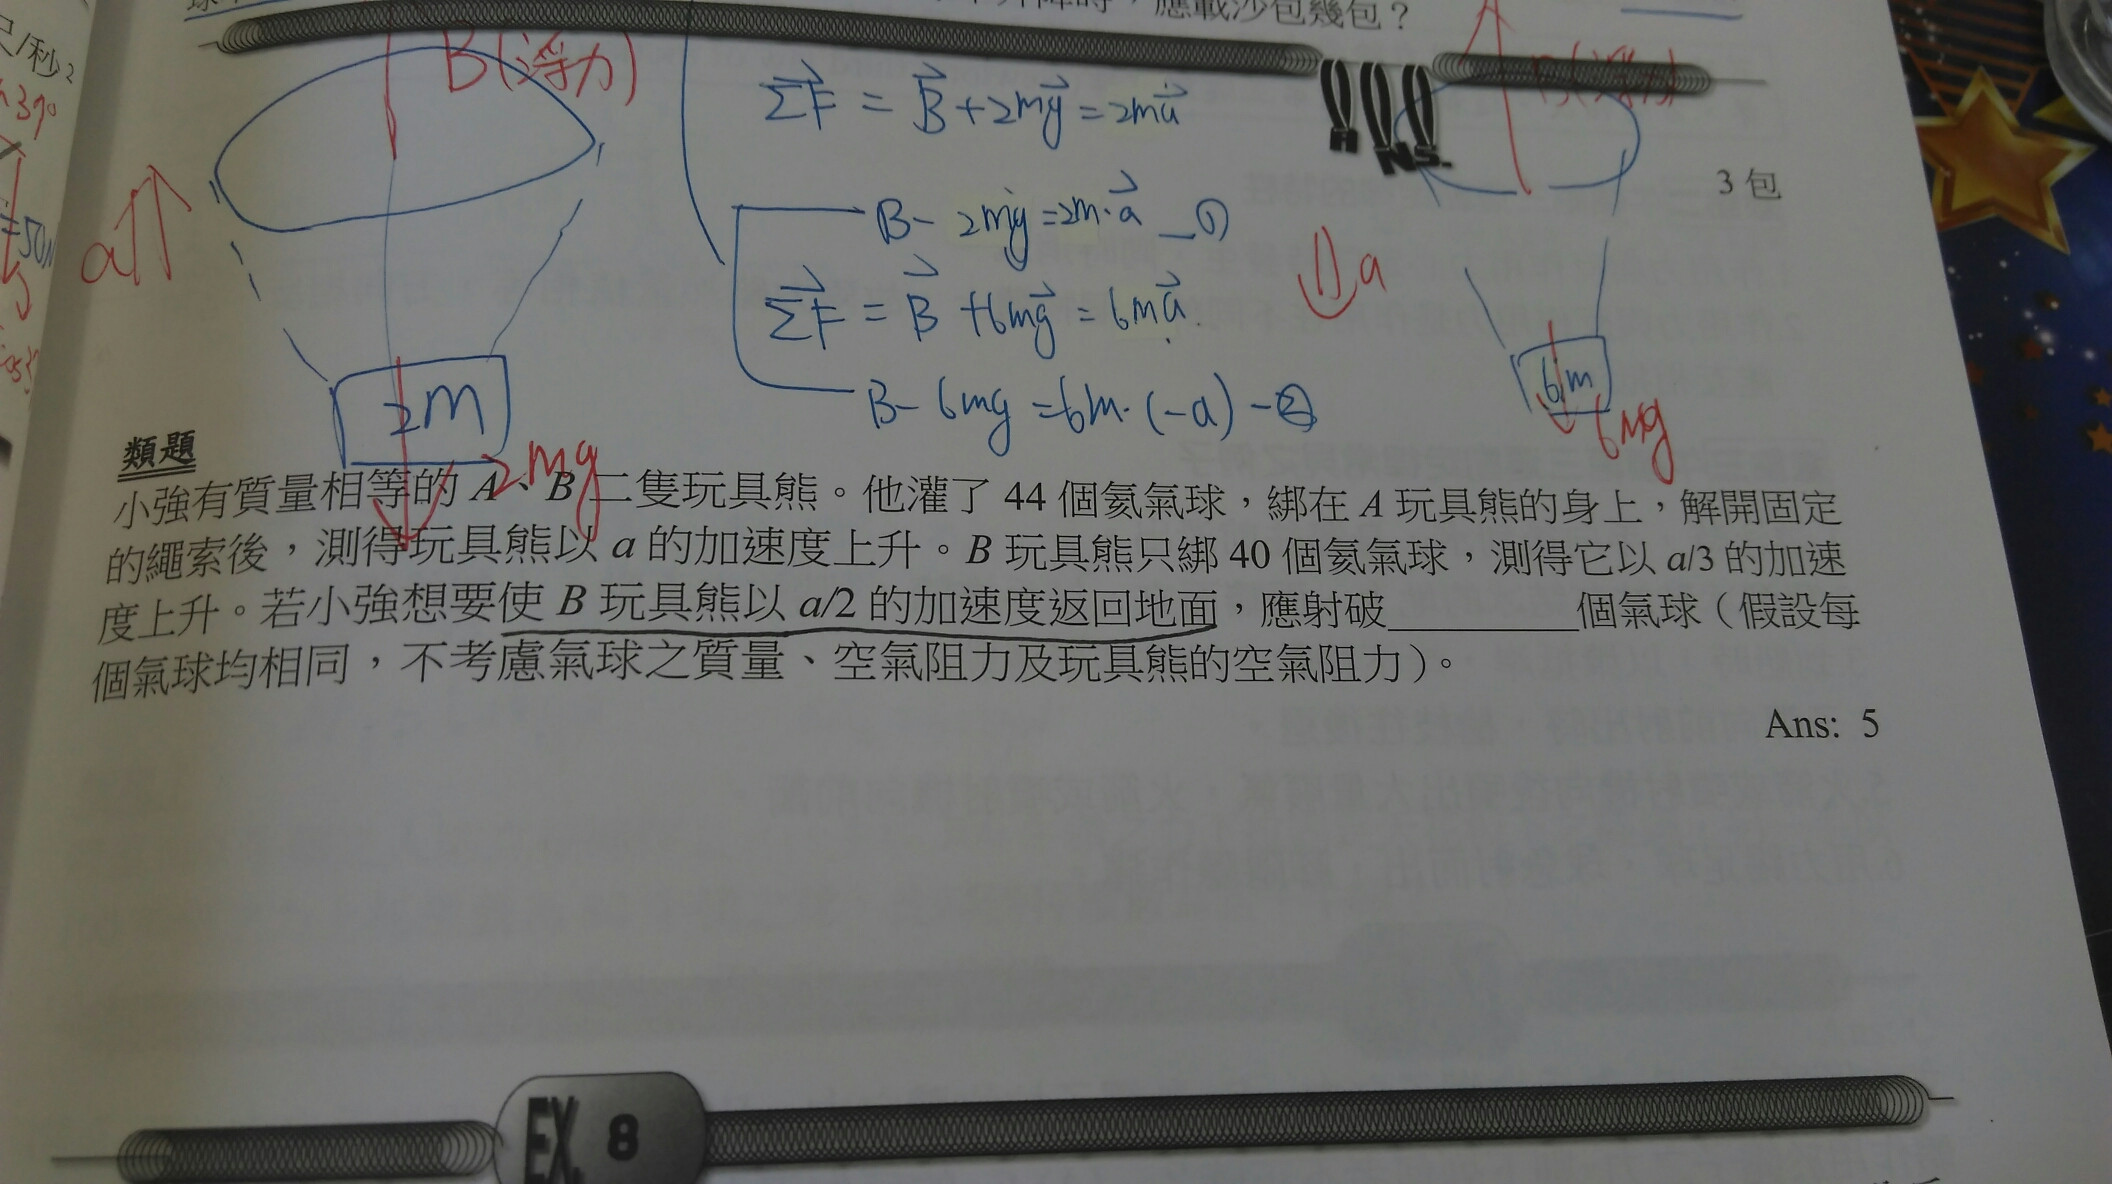 尺/秒2
37°
=50N
應載沙包幾包？
B(浮力)
ΣF = B + 2mg = 2ma
3 包
B - 2mg = 2m·a ─①
a
ΣF = B + 6mg = 6ma
a
B - 6mg = 6m·(-a) -②
2m
2mg
6m
6mg
類題
小強有質量相等的 A、B 二隻玩具熊。他灌了 44 個氦氣球，綁在 A 玩具熊的身上，解開固定
的繩索後，測得玩具熊以 a 的加速度上升。B 玩具熊只綁 40 個氦氣球，測得它以 a/3 的加速
度上升。若小強想要使 B 玩具熊以 a/2 的加速度返回地面，應射破__________個氣球（假設每
個氣球均相同，不考慮氣球之質量、空氣阻力及玩具熊的空氣阻力）。
Ans: 5
EX. 8